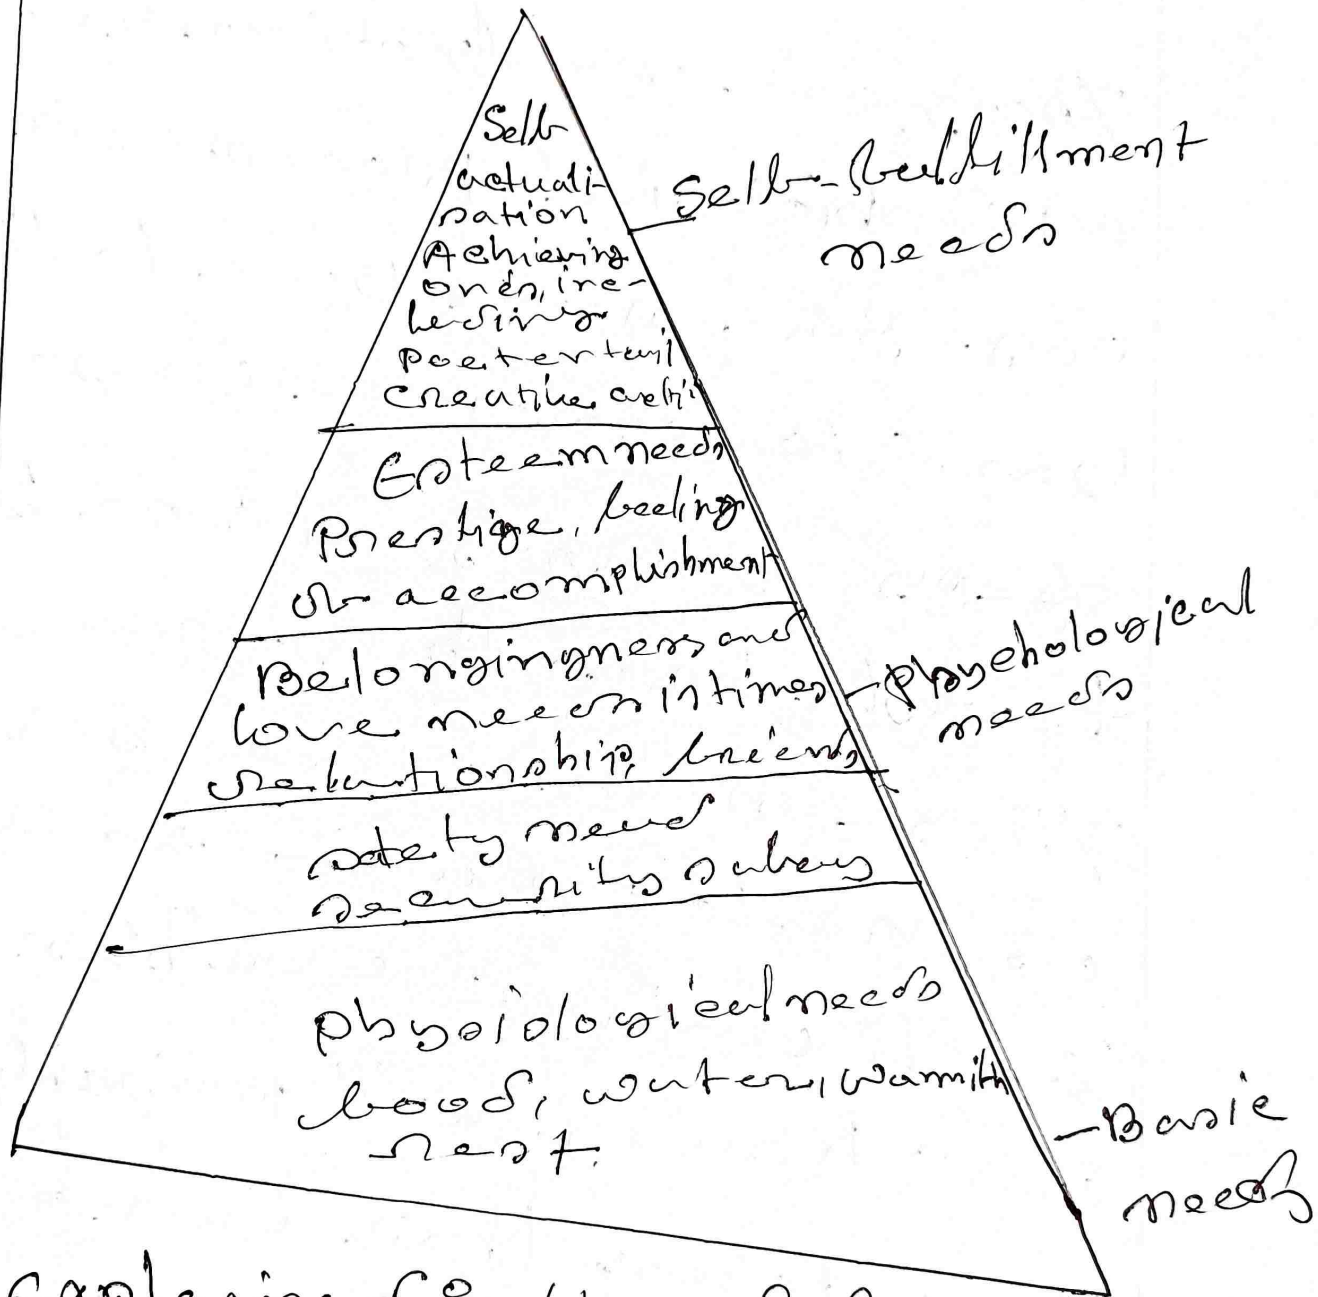 Self
actuali-
sation
Achieving
one's, inc-
luding
potential
creative acti
Self-fulfillment
needs
Esteem needs
Prestige, feeling
of accomplishment
Belongingness and
love needs intimes
relationship, friends
Psychological
needs
safety need
security safety
physiological needs
food, water, warmth
rest.
Basic
needs